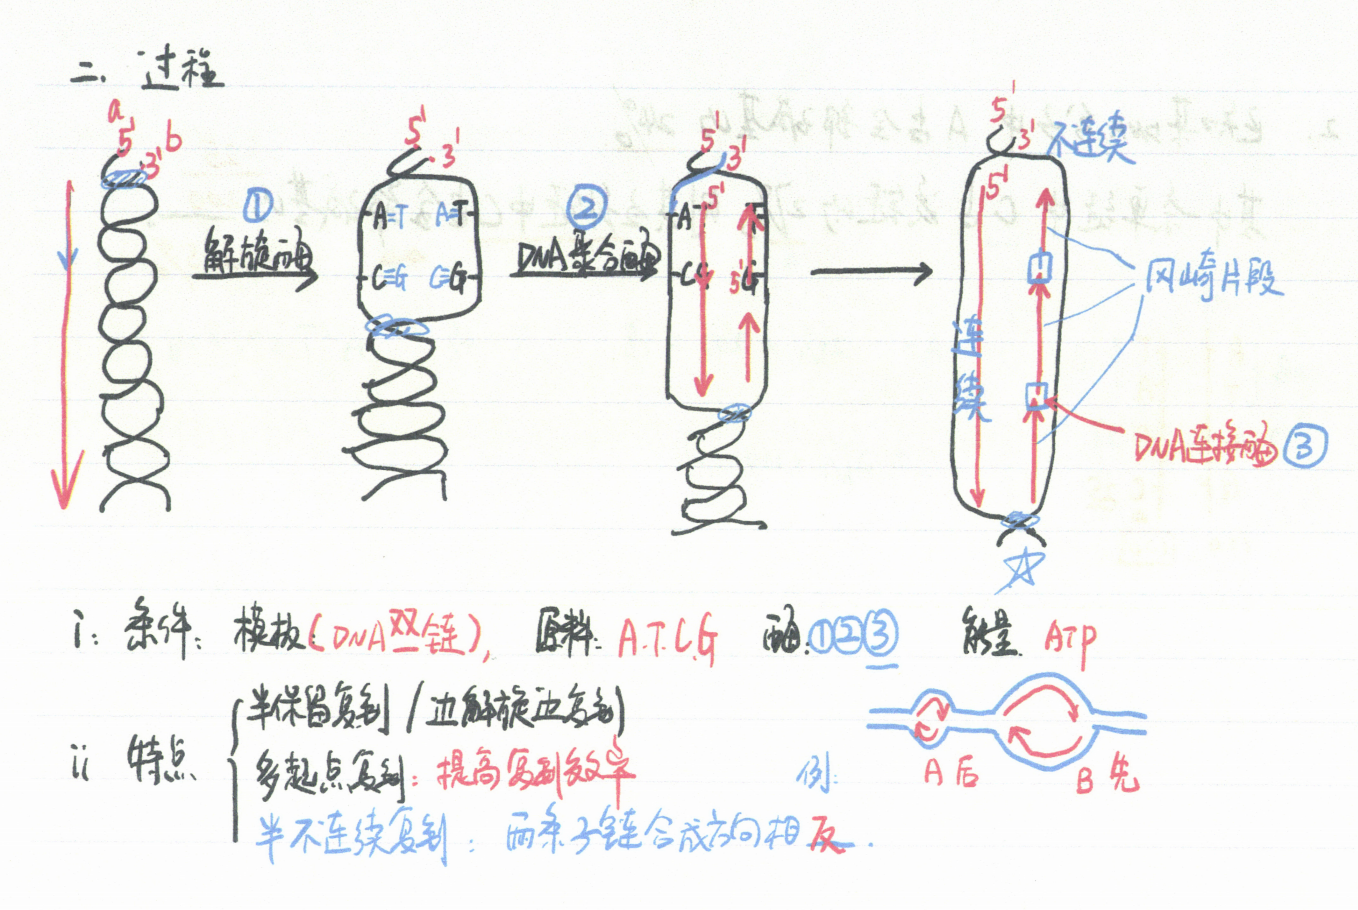 二. 过程
a
5' b
3'
① 解旋酶
5' 3'
A=T A=T
C≡G C≡G
② DNA聚合酶
5' 3'
5'
A T
C 5' G
5' 3' 不连续
5'
连续
冈崎片段
DNA连接酶 ③
i: 条件: 模板(DNA双链), 原料: A.T.C.G 酶:①②③ 能量: ATP
ii 特点
半保留复制 / 边解旋边复制
多起点复制: 提高复制效率
半不连续复制: 两条子链合成方向相反.
例:
A后 B先